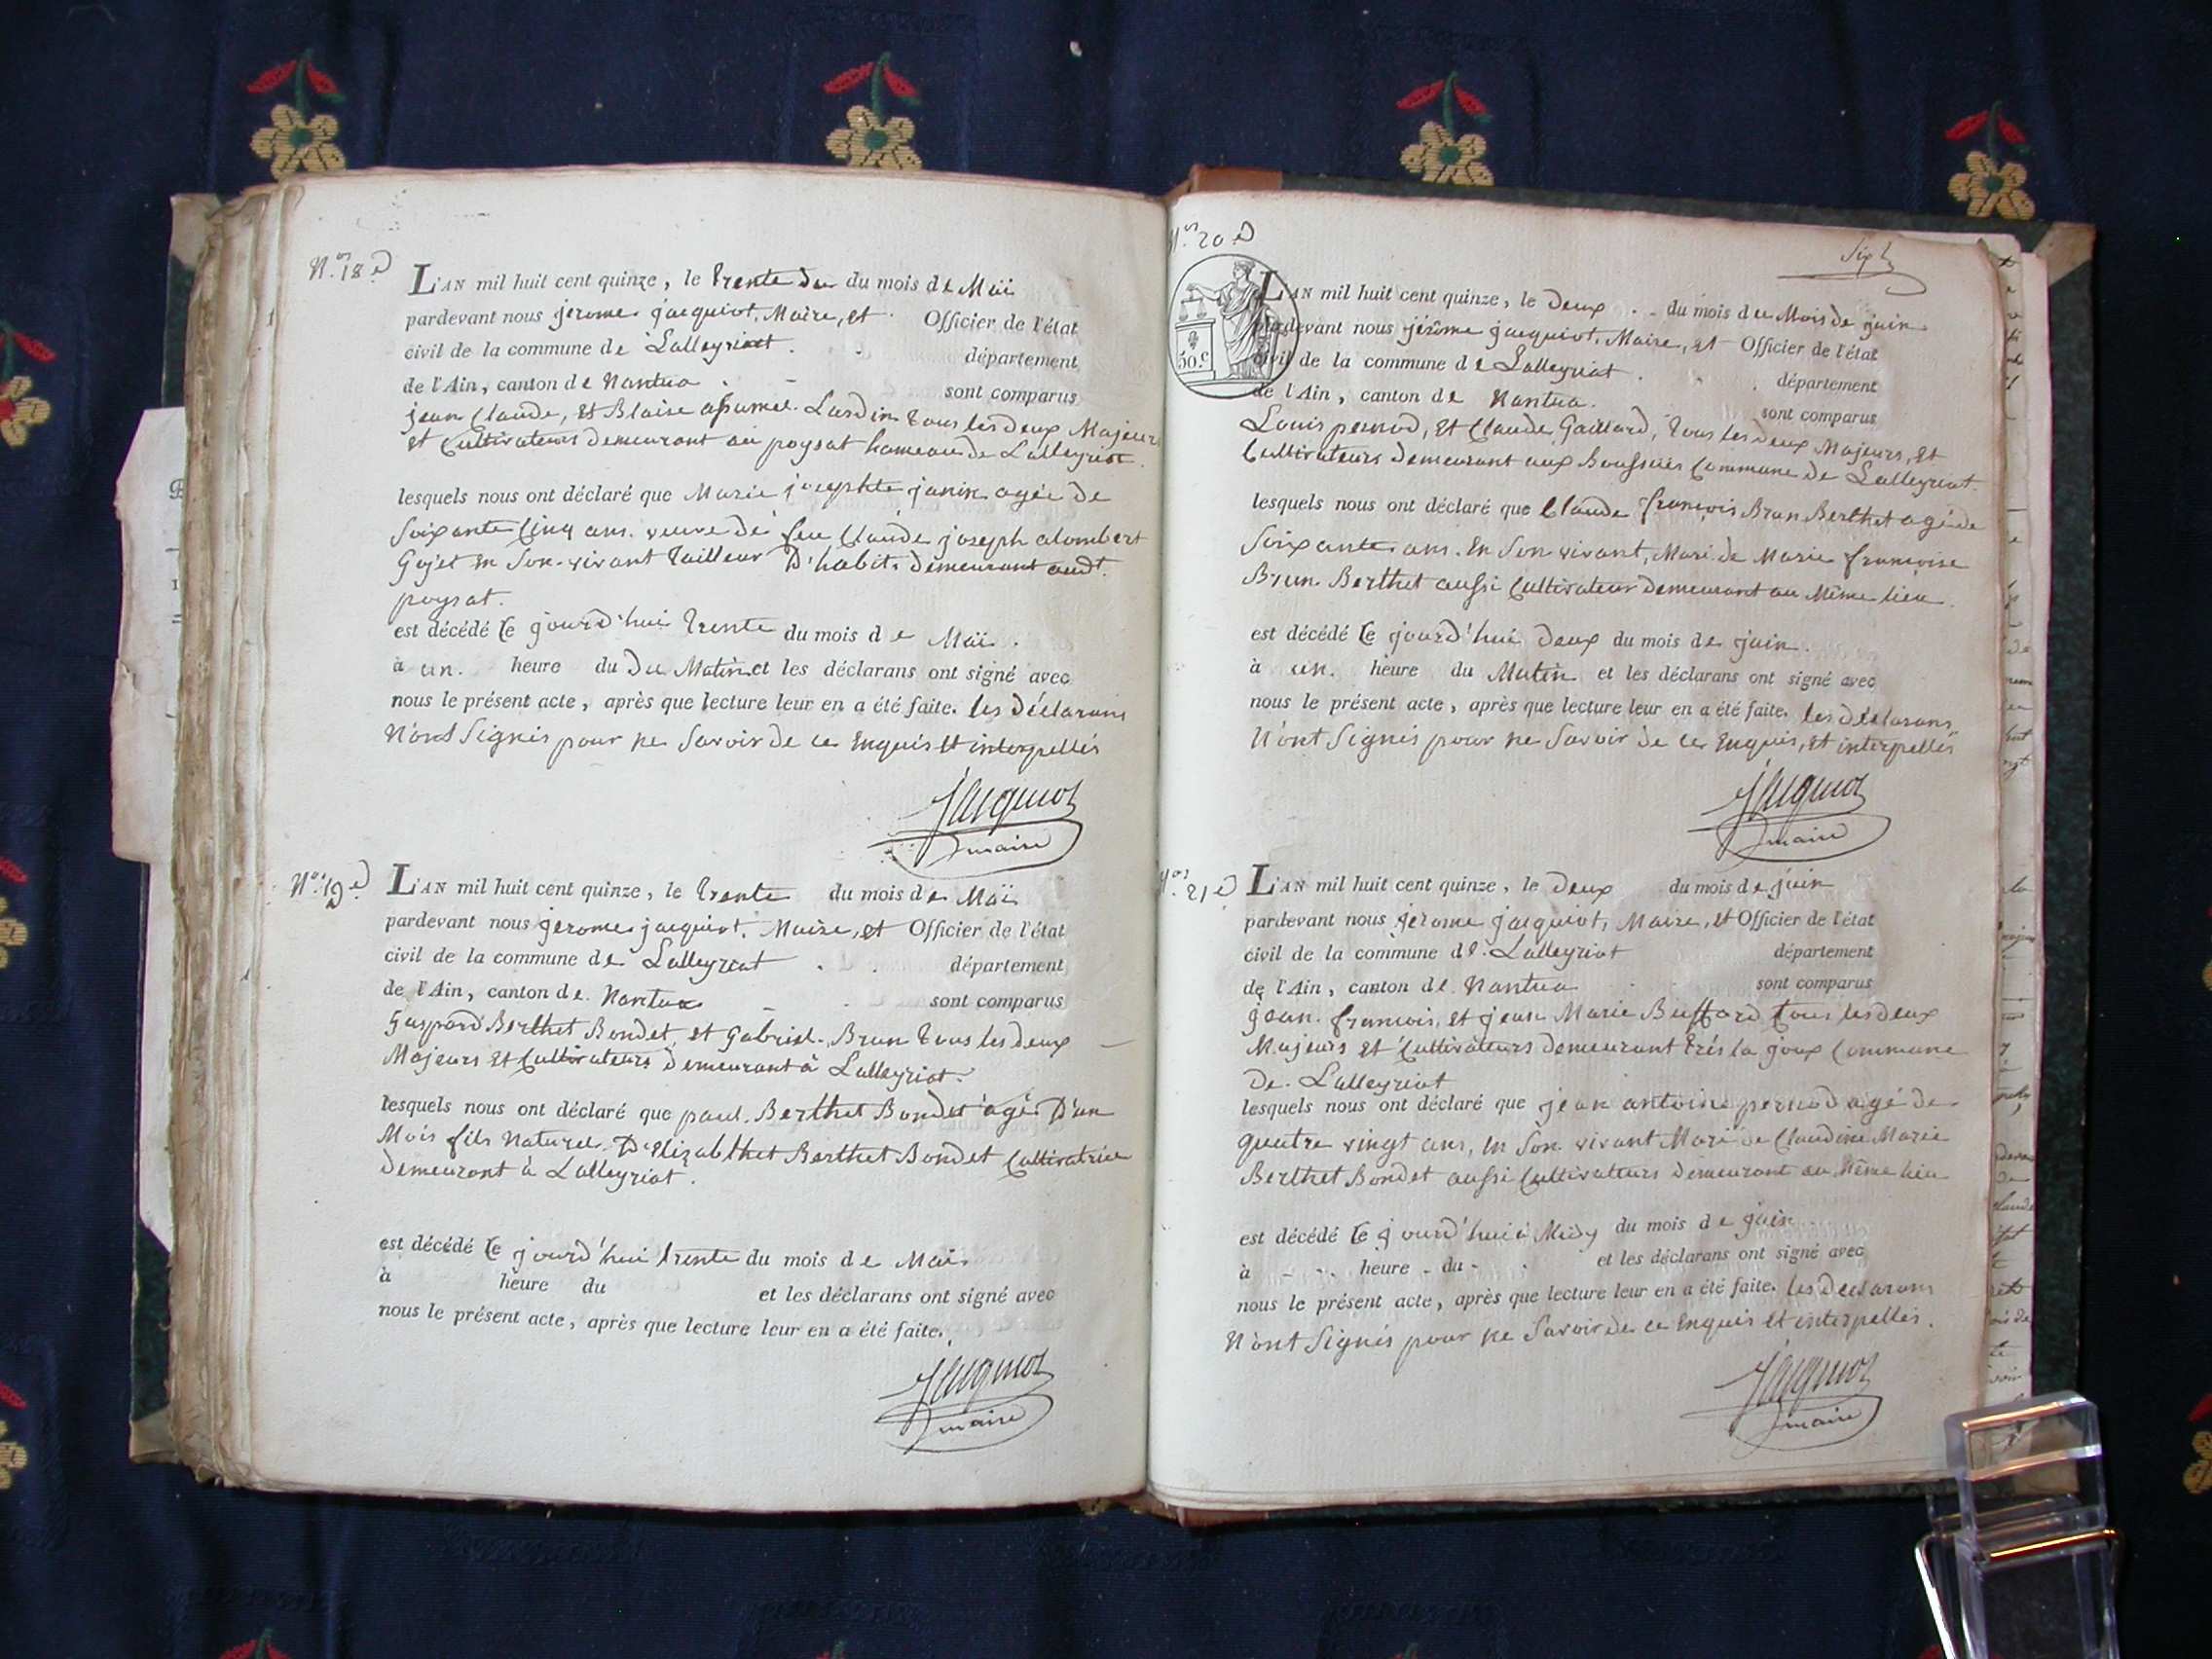 N.os 18 e
L'AN mil huit cent quinze, le trente du du mois de Maï
pardevant nous jerome jacquiot, Maire, et Officier de l'état
civil de la commune de Lalleyriat. département
de l'Ain, canton de Nantua. sont comparus
jean Claude, et Blaise Lardin tous les deux Majeurs
et Cultivateurs demeurant au poysat hameau de Lalleyriat.
lesquels nous ont déclaré que Marie josephte janin agée de
Soixante Cinq ans. veuve de feu Claude joseph alombert
Gojet en Son vivant tailleur D'habits demeurant audt.
poysat.
est décédé le jourd'hui trente du mois de Maï.
à un. heure du du Matin et les déclarans ont signé avec
nous le présent acte, après que lecture leur en a été faite. les déclarans
N'ont Signés pour ne Savoir de ce Enquis et interpellés
Jacquiot
maire
N.os 19 e
L'AN mil huit cent quinze, le trente du mois de Maï
pardevant nous jerome jacquiot, Maire, et Officier de l'état
civil de la commune de Lalleyriat. département
de l'Ain, canton de Nantua sont comparus
Gaspard Berthet Bondet, et Gabriel Brun tous les deux
Majeurs et Cultivateurs demeurant à Lalleyriat.
lesquels nous ont déclaré que paul Berthet Bondet agé D'un
Mois fils Naturel D'Elizabthet Berthet Bondet Cultivatrice
demeurant à Lalleyriat.
est décédé le jourd'hui trente du mois de Maï
à heure du et les déclarans ont signé avec
nous le présent acte, après que lecture leur en a été faite.
Jacquiot
maire
N.os 20 e
50.c
L'AN mil huit cent quinze, le deux du mois de Mois de juin
pardevant nous jérôme jacquiot, Maire, et Officier de l'état
civil de la commune de Lalleyriat. département
de l'Ain, canton de Nantua. sont comparus
Louis pernod, et Claude Gaillard, tous les deux Majeurs, et
Cultivateurs demeurant aux Commune de Lalleyriat.
lesquels nous ont déclaré que Claude françois Brun Berthet agé de
Soixante ans. En Son vivant, Mari de Marie françoise
Brun Berthet aussi Cultivateur demeurant au Même lieu.
est décédé le jourd'hui deux du mois de juin.
à un. heure du Matin et les déclarans ont signé avec
nous le présent acte, après que lecture leur en a été faite. les déclarans
N'ont Signés pour ne Savoir de ce Enquis, et interpellés
Jacquiot
maire
N.os 21 e
L'AN mil huit cent quinze, le deux du mois de juin
pardevant nous jerome jacquiot, Maire, et Officier de l'état
civil de la commune de Lalleyriat département
de l'Ain, canton de Nantua sont comparus
jean françois, et jean Marie Buffard tous les deux
Majeurs et Cultivateurs demeurant trés la joux Commune
de Lalleyriat
lesquels nous ont déclaré que jean antoine pernod agé de
quatre vingt ans, en Son vivant Mari de Claudine Marie
Berthet Bondet aussi Cultivateurs demeurant au Même lieu
est décédé le jourd'hui à Midy du mois de juin
à heure du et les déclarans ont signé avec
nous le présent acte, après que lecture leur en a été faite. les déclarans
N'ont Signés pour ne Savoir de ce Enquis et interpellés.
Jacquiot
maire